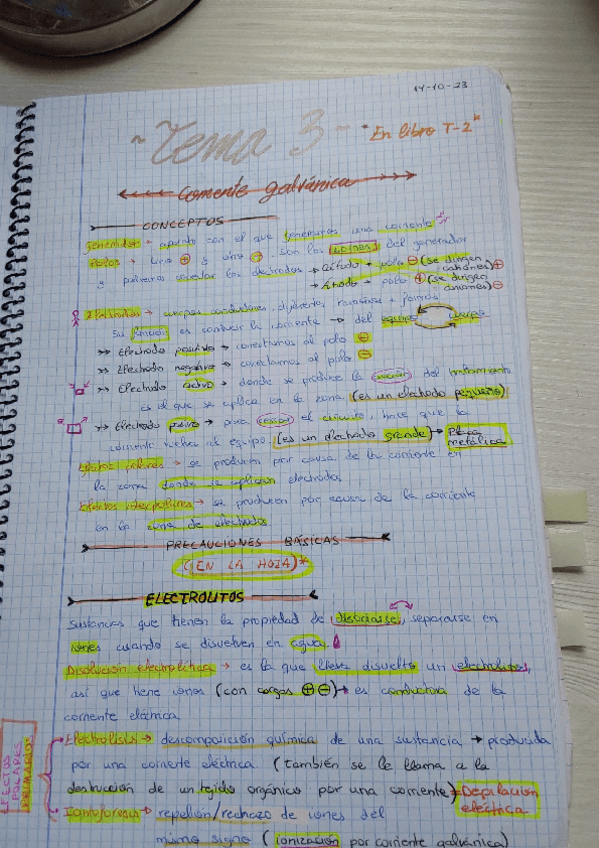 14-10-23
~ Tema 3 - "En libro T-2"
Corriente galvánica
CONCEPTOS
Generador → aparato con el que generamos una corriente
Polos → uno ⊕ y otro ⊖. Son los bornes del generador
y podremos conectar los electrodos → Cátodo → polo ⊖ (se dirigen cationes) ⊕
→ Ánodo → polo ⊕ (se dirigen aniones) ⊖
Electrodos → cuerpos conductores, diferentes tamaños y formas
Su función es conducir la corriente → del equipo cuerpo
>> Electrodo positivo → conectamos al polo ⊕
>> Electrodo negativo → conectamos al polo ⊖
>> Electrodo activo → donde se produce la acción del tratamiento
es el que se aplica en la zona (es un electrodo pequeño)
>> Electrodo pasivo → para cerrar el circuito, hace que la
corriente vuelva al equipo (es un electrodo grande) → Placa metálica
Efectos polares → se producen por causa de la corriente en
la zona donde se aplican electrodos
Efectos interpolares → se producen por causa de la corriente
en la zona de electrodos
PRECAUCIONES BÁSICAS
(EN LA HOJA)*
ELECTROLITOS
sustancias que tienen la propiedad de disociarse, separarse en
iones cuando se disuelven en agua
Disolución electrolítica → es la que lleva disuelto un electrolito,
así que tiene iones (con cargas ⊕⊖) → es conductora de la
corriente eléctrica
EFECTOS POLARES PRIMARIOS
Electrolisis → descomposición química de una sustancia → producida
por una coriente eléctrica. (también se le llama a la
destrucción de un tejido orgánico por una corriente) = Depilación eléctrica
Ionoforesis → repelión/rechazo de iones del
mismo signo (ionización por corriente galvánica)